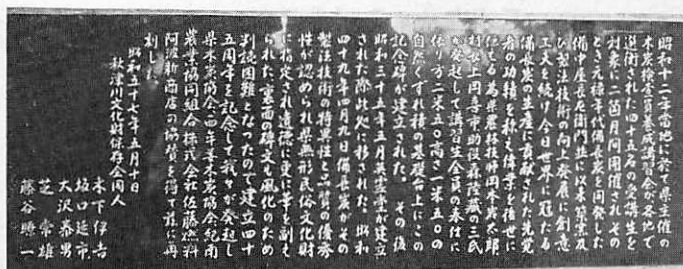 昭和十二年当地に於て県主催の
木炭検査員養成講習会が各地で
選衡された四十五名の受講生を
対象に二箇月間開催されその
とき元禄年代備長炭を開発した
備中屋長左衛門並に以来築窯及
び製法技術の向上発展に創意
工夫を続け今日世界に冠たる
備長炭の生産に貢献された先覚
者の功績を称え偉業を後世に
伝える為県農林技師岡本茂太郎
村長上岡喜市助役森隆蔵の三氏
が発起して講習生全員の奉仕に
依り方二米五〇高さ一米五〇の
自然くずれ積の基礎台上にこの
記念碑が建立された その後
昭和三十五年五月英霊堂が建立
された際此処に移された 昭和
四十九年四月九日備長炭がその
製法技術の特異性と品質の優秀
性が認められ県無形民俗文化財
に指定され遺徳に更に華を副え
られた 裏面の碑文も風化のため
判読困難となったので建立四十
五周年を記念して我々が発起し
県木炭協会 四年善木炭協会 紀南
農業協同組合 株式会社佐藤燃料
阿波新商店の協賛を得て茲に再
刻した
昭和五十七年五月十日
秋津川文化財保存会同人
木下伊吉
坂口延市
大沢泰男
芝 常雄
藤谷照一